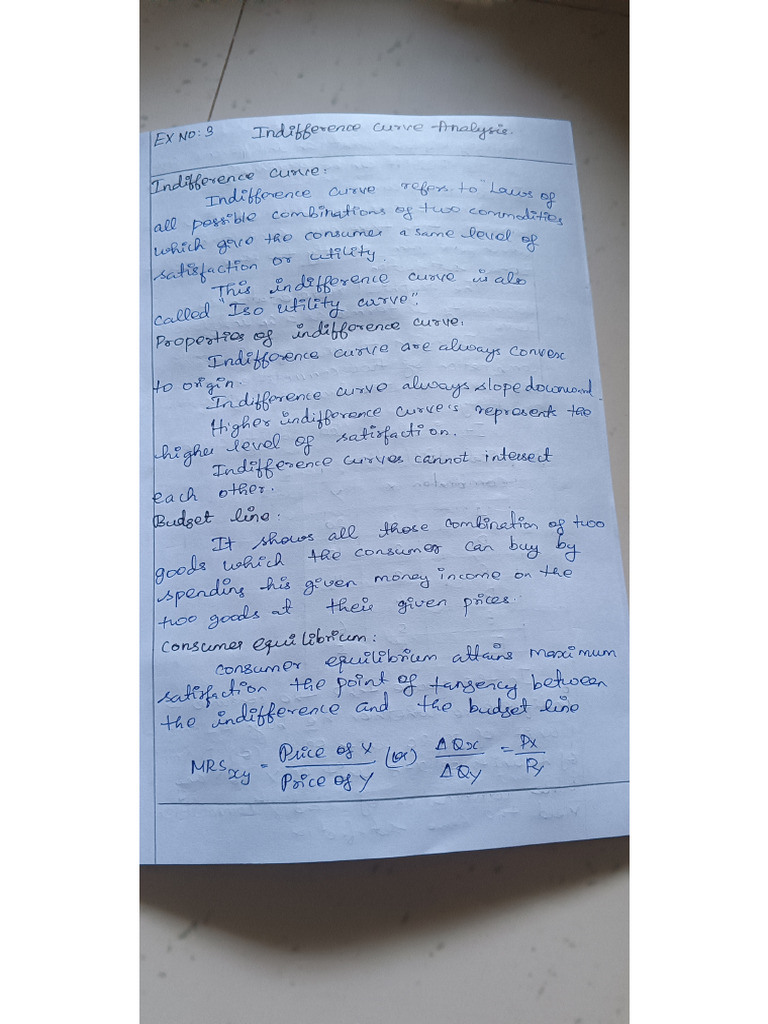 EX NO: 3 Indifference curve Analysis.
Indifference curve:
Indifference curve refers to "Laws of
all possible combinations of two commodities
which give the consumer a same level of
satisfaction or utility.
This indifference curve is also
called "Iso utility curve".
Properties of indifference curve:
Indifference curve are always convex
to origin.
Indifference curve always slope downward.
Higher indifference curve's represent the
higher level of satisfaction.
Indifference curves cannot intersect
each other.
Budget line:
It shows all those combination of two
goods which the consumer can buy by
spending his given money income on the
two goods at their given prices.
Consumer equilibrium:
Consumer equilibrium attains maximum
satisfaction the point of tangency between
the indifference and the budget line
MRSxy = Price of X / Price of Y (or) ΔQx / ΔQy = Px / Py